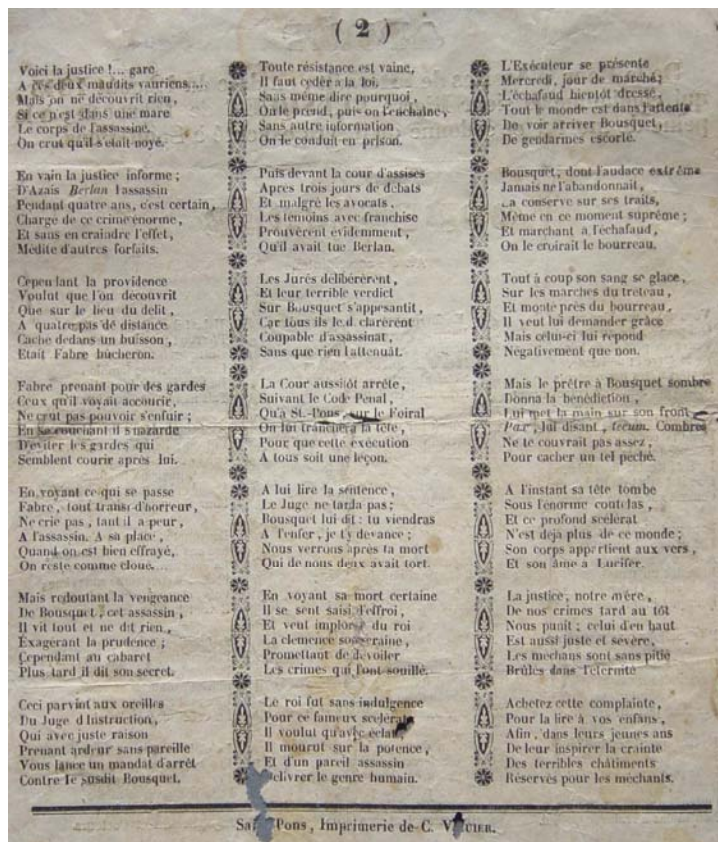 ( 2 )
Voici la justice !... gare
A ces deux maudits vauriens...
Mais on ne découvrit rien,
Si ce n'est dans une mare
Le corps de l'assassiné.
On crut qu'il s'était noyé.
En vain la justice informe ;
D'Azais Berlan l'assassin
Pendant quatre ans, c'est certain,
Charge de ce crime énorme,
Et sans en craindre l'effet,
Médite d'autres forfaits.
Cependant la providence
Voulut que l'on découvrit
Que sur le lieu du delit,
A quatre pas de distance
Cache dedans un buisson,
Etait Fabre bûcheron.
Fabre prenant pour des gardes
Ceux qu'il voyait accourir,
Ne crut pas pouvoir s'enfuir ;
En se couchant il s'hazarde
D'éviter les gardes qui
Semblent courir après lui.
En voyant ce qui se passe
Fabre, tout transi d'horreur,
Ne crie pas, tant il a peur,
A l'assassin. A sa place,
Quand on est bien effrayé,
On reste comme cloué...
Mais redoutant la vengeance
De Bousquet, cet assassin,
Il vit tout et ne dit rien,
Exagérant la prudence ;
Cependant au cabaret
Plus tard il dit son secret.
Ceci parvint aux oreilles
Du Juge d'Instruction,
Qui avec juste raison
Prenant ardeur sans pareille
Vous lance un mandat d'arrêt
Contre le susdit Bousquet.
Toute résistance est vaine,
Il faut céder à la loi.
Sans même dire pourquoi,
On le prend, puis on l'enchaîne,
Sans autre information
On le conduit en prison.
Puis devant la cour d'assises
Apres trois jours de débats
Et malgré les avocats,
Les témoins avec franchise
Prouvèrent évidemment,
Qu'il avait tué Berlan.
Les Jurés délibérèrent,
Et leur terrible verdict
Sur Bousquet s'appesantit,
Car tous ils le déclarèrent
Coupable d'assassinat,
Sans que rien l'attenuât.
La Cour aussitôt arrête,
Suivant le Code Pénal,
Qu'à St.-Pons, sur le Foiral
On lui tranchera la tête,
Pour que cette exécution
A tous soit une leçon.
A lui lire la sentence,
Le Juge ne tarda pas ;
Bousquet lui dit : tu viendras
A l'enfer, je t'y devance ;
Nous verrons après ta mort
Qui de nous deux avait tort.
En voyant sa mort certaine
Il se sent saisi d'effroi,
Et veut implorer du roi
La clémence souveraine,
Promettant de dévoiler
Les crimes qui l'ont souillé.
Le roi fut sans indulgence
Pour ce fameux scelerat
Il voulut qu'avec éclat
Il mourut sur la potence,
Et d'un pareil assassin
Delivrer le genre humain.
L'Exécuteur se présente
Mercredi, jour de marché ;
L'échafaud bientôt dressé,
Tout le monde est dans l'attente
De voir arriver Bousquet,
De gendarmes escorté.
Bousquet, dont l'audace extrême
Jamais ne l'abandonnait,
La conserve sur ses traits,
Même en ce moment suprême ;
Et marchant a l'échafaud,
On le croirait le bourreau.
Tout à coup son sang se glace,
Sur les marches du treteau,
Et monté près du bourreau,
Il veut lui demander grâce
Mais celui-ci lui répond
Négativement que non.
Mais le prêtre à Bousquet sombre
Donna la bénédiction,
Lui met la main sur son front
Pax, lui disant, tecum. Combres
Ne te couvrait pas assez,
Pour cacher un tel peché.
A l'instant sa tête tombe
Sous l'énorme coutelas,
Et ce profond scélérat
N'est déja plus de ce monde ;
Son corps appartient aux vers,
Et son âme a Lucifer.
La justice, notre mère,
De nos crimes tard au tôt
Nous punit ; celui d'en haut
Est aussi juste et sevère,
Les méchans sont sans pitié
Brûles dans l'éternité
Achetez cette complainte,
Pour la lire à vos enfans,
Afin, dans leurs jeunes ans
De leur inspirer la crainte
Des terribles châtiments
Réservés pour les méchants.
Pons, Imprimerie de C.